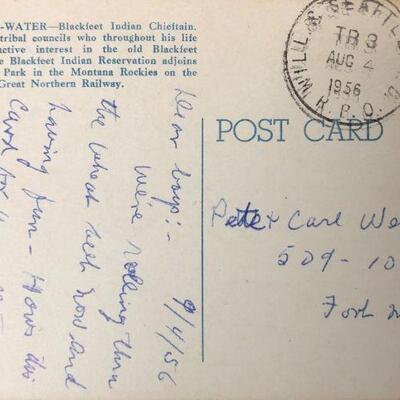 -WATER—Blackfeet Indian Chieftain.
tribal councils who throughout his life
nctive interest in the old Blackfeet
e Blackfeet Indian Reservation adjoins
Park in the Montana Rockies on the
Great Northern Railway.
WILL. & SEATTLE
TR 3
AUG 4
1956
R.P.O.
POST CARD
9/4/56
Dear boys:-
We're rolling thru
the wheat belt now and
having fun - How's this
Card for
Peter Carl We
509-10
Fort